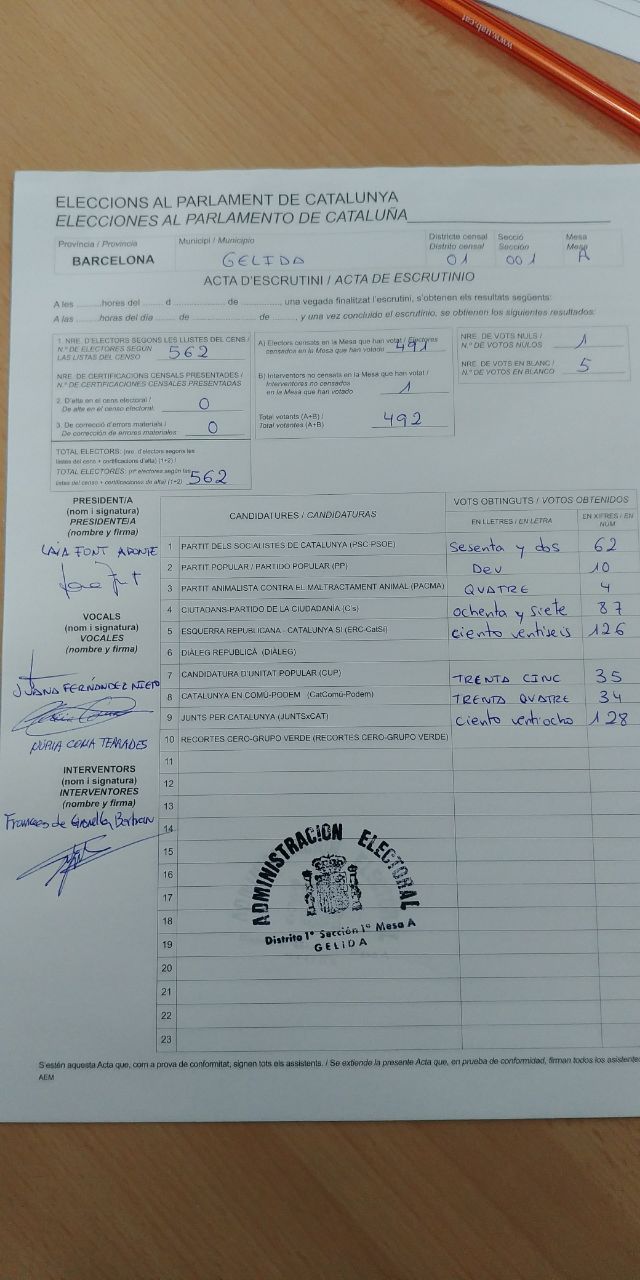 www.uab.cat
ELECCIONS AL PARLAMENT DE CATALUNYA
ELECCIONES AL PARLAMENTO DE CATALUÑA
Província / Provincia
BARCELONA
Municipi / Municipio
GELIDA
Districte censal
Distrito censal
01
Secció
Sección
001
Mesa
Mesa
A
ACTA D'ESCRUTINI / ACTA DE ESCRUTINIO
A les ......... hores del ...... d ............... de ............, una vegada finalitzat l'escrutini, s'obtenen els resultats següents:
A las ......... horas del día ...... de ............... de ............, y una vez concluido el escrutinio, se obtienen los siguientes resultados:
1. NRE. D'ELECTORS SEGONS LES LLISTES DEL CENS /
N.º DE ELECTORES SEGÚN
LAS LISTAS DEL CENSO
562
NRE. DE CERTIFICACIONS CENSALS PRESENTADES /
N.º DE CERTIFICACIONES CENSALES PRESENTADAS
2. D'alta en el cens electoral /
De alta en el censo electoral:
0
3. De correcció d'errors materials /
De corrección de errores materiales:
0
TOTAL ELECTORS: (nre. d'electors segons les
llistes del cens + certificacions d'alta) (1+2) /
TOTAL ELECTORES: (nº electores según las
listas del censo + certificaciones de alta) (1+2)
562
A) Electors censats en la Mesa que han votat / Electores
censados en la Mesa que han votado
491
B) Interventors no censats en la Mesa que han votat /
Interventores no censados
en la Mesa que han votado
1
Total votants (A+B) /
Total votantes (A+B)
492
NRE. DE VOTS NULS /
N.º DE VOTOS NULOS
1
NRE. DE VOTS EN BLANC /
N.º DE VOTOS EN BLANCO
5
PRESIDENT/A
(nom i signatura)
PRESIDENTE/A
(nombre y firma)
LAIA FONT APONTE
VOCALS
(nom i signatura)
VOCALES
(nombre y firma)
JUANA FERNÁNDEZ NIETO
NÚRIA COMA TERRADES
INTERVENTORS
(nom i signatura)
INTERVENTORES
(nombre y firma)
Francesc de Bertran
CANDIDATURES / CANDIDATURAS
VOTS OBTINGUTS / VOTOS OBTENIDOS
EN LLETRES / EN LETRA
EN XIFRES / EN
NUM
1 PARTIT DELS SOCIALISTES DE CATALUNYA (PSC-PSOE) sesenta y dos 62
2 PARTIT POPULAR / PARTIDO POPULAR (PP) DEU 10
3 PARTIT ANIMALISTA CONTRA EL MALTRACTAMENT ANIMAL (PACMA) QUATRE 4
4 CIUTADANS-PARTIDO DE LA CIUDADANÍA (C's) ochenta y siete 87
5 ESQUERRA REPUBLICANA - CATALUNYA SÍ (ERC-CatSí) ciento ventiseis 126
6 DIÀLEG REPUBLICÀ (DIÀLEG)
7 CANDIDATURA D'UNITAT POPULAR (CUP) TRENTA CINC 35
8 CATALUNYA EN COMÚ-PODEM (CatComú-Podem) TRENTA QUATRE 34
9 JUNTS PER CATALUNYA (JUNTSxCAT) ciento ventiocho 128
10 RECORTES CERO-GRUPO VERDE (RECORTES CERO-GRUPO VERDE)
11
12
13
14
15
16
17
18
19
20
21
22
23
ADMINISTRACION ELECTORAL
Distrito 1º Sección 1º Mesa A
GELIDA
S'estén aquesta Acta que, com a prova de conformitat, signen tots els assistents. / Se extiende la presente Acta que, en prueba de conformidad, firman todos los asistentes
AEM